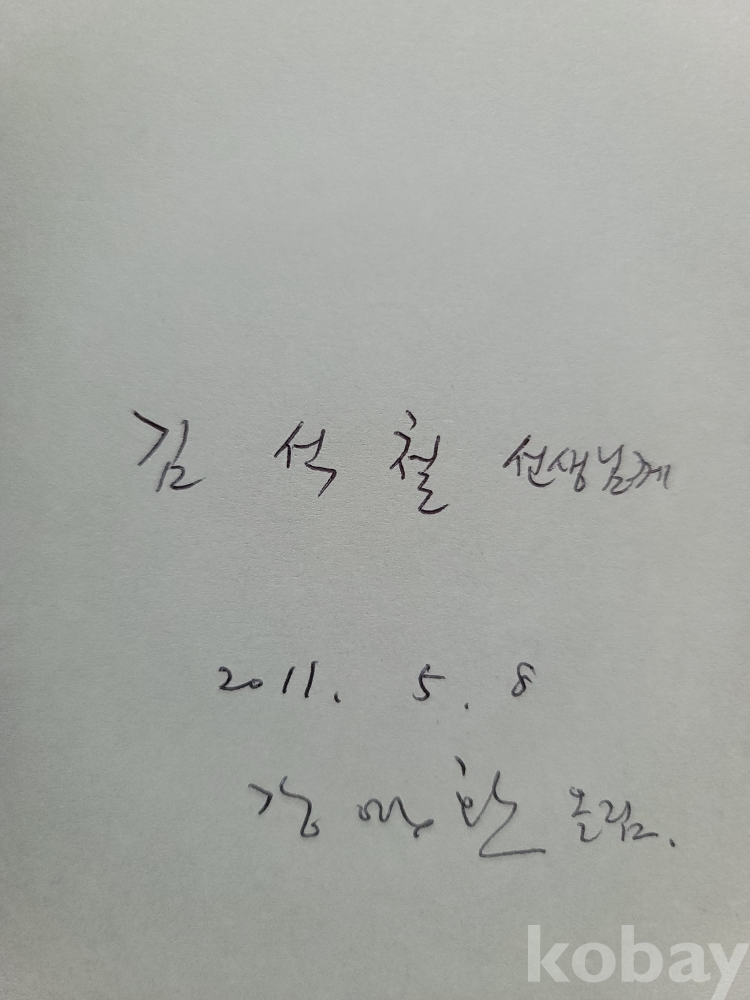 김 석 철 선생님께
2011. 5. 8
강 올림.
kobay